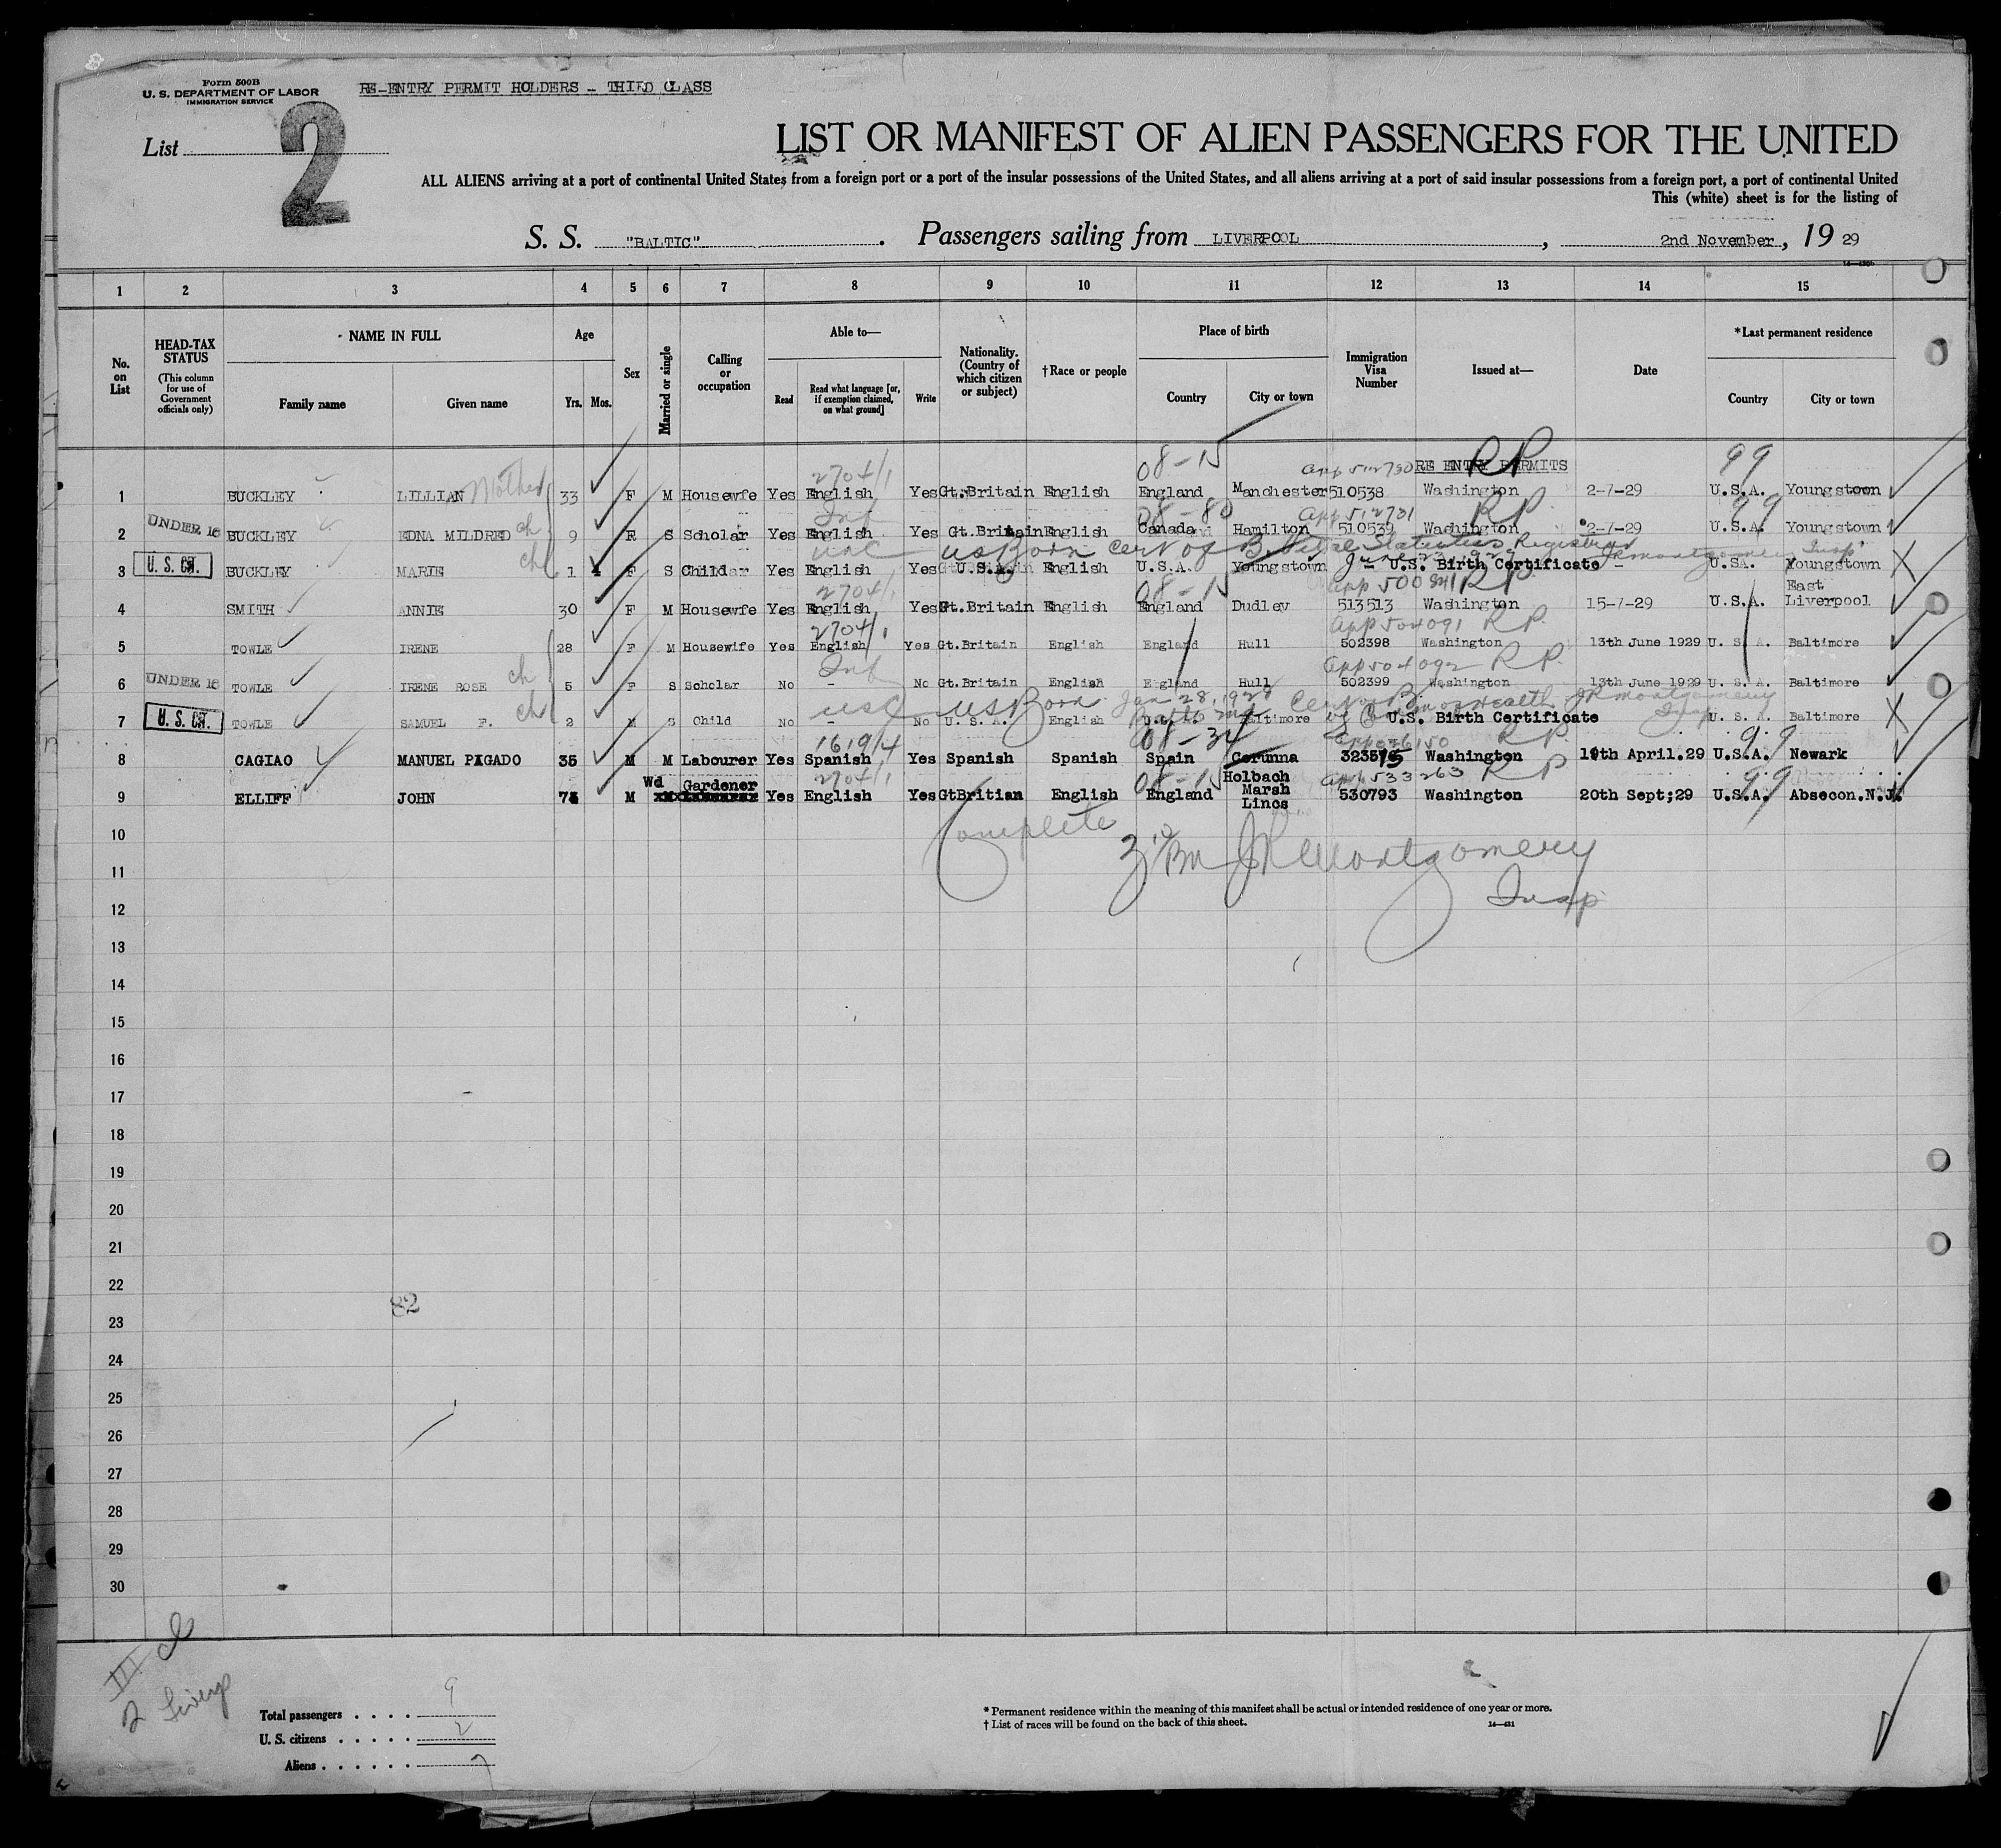 Form 500B
U. S. DEPARTMENT OF LABOR
IMMIGRATION SERVICE
RE-ENTRY PERMIT HOLDERS - THIRD CLASS
List
2
LIST OR MANIFEST OF ALIEN PASSENGERS FOR THE UNITED
ALL ALIENS arriving at a port of continental United States from a foreign port or a port of the insular possessions of the United States, and all aliens arriving at a port of said insular possessions from a foreign port, a port of continental United
This (white) sheet is for the listing of
S. S. "BALTIC". Passengers sailing from LIVERPOOL, 2nd November, 19 29
1 2 3 4 5 6 7 8 9 10 11 12 13 14 15
No. on List
HEAD-TAX STATUS (This column for use of Government officials only)
NAME IN FULL
Family name Given name
Age
Yrs. Mos.
Sex
Married or single
Calling or occupation
Able to—
Read Read what language [or, if exemption claimed, on what ground] Write
Nationality. (Country of which citizen or subject)
†Race or people
Place of birth
Country City or town
Immigration Visa Number
Issued at—
Date
*Last permanent residence
Country City or town
2704/1 08-15 app 512730 RE ENTRY PERMITS RP 99
1 BUCKLEY LILLIAN Mother 33 F M Housewfe Yes English Yes Gt.Britain English England Manchester 510538 Washington 2-7-29 U.S.A. Youngstown
Inf 08-80 app 512731 RP 99
2 UNDER 16 BUCKLEY EDNA MILDRED ch 9 F S Scholar Yes English Yes Gt. Britain English Canada Hamilton 510539 Washington 2-7-29 U.S.A. Youngstown
USC US Born Cert of B. Vital Statistics Registrar JRMontgomery Insp
3 U. S. CIT. BUCKLEY MARIE ch 1 F S Child Yes English Yes U.S.A. English U.S.A. Youngstown - U.S. Birth Certificate - U.SA. Youngstown
2704/1 08-15 app 500841 RP
4 SMITH ANNIE 30 F M Housewfe Yes English Yes Gt.Britain English England Dudley 513513 Washington 15-7-29 U.S.A. East Liverpool
2704/1 app 504091 RP
5 TOWLE IRENE 28 F M Housewife Yes English Yes Gt.Britain English England Hull 502398 Washington 13th June 1929 U. S. A. Baltimore
Inf app 504092 RP
6 UNDER 16 TOWLE IRENE ROSE ch 5 F S Scholar No - No Gt.Britain English England Hull 502399 Washington 13th June 1929 U. S. A. Baltimore
USC US Born Jan 28, 1927 Balto Md Cert of B. JRMontgomery Insp
7 U. S. CIT. TOWLE SAMUEL F. ch 2 M S Child No - No U. S. A. English U. S. A. Baltimore U.S. Birth Certificate U. S. A. Baltimore
1619/4 08-34 RP 99
8 CAGIAO MANUEL PIGADO 35 M M Labourer Yes Spanish Yes Spanish Spanish Spain Corunna 323515 Washington 19th April.29 U.S.A. Newark
2704/1 08-15 app 533263 RP 99
9 ELLIFF JOHN 74 M Wd Gardener Yes English Yes GtBritian English England Holbach Marsh Lincs 530793 Washington 20th Sept;29 U.S.A. Absecon.N.J.
10 Complete
JRMontgomery
11
Insp
12
13
14
15
16
17
18
19
20
21
22
82
23
24
25
26
27
28
29
30
III cl
2 Liverp
Total passengers . . . . 9
U. S. citizens . . . . . 2
Aliens . . . . . . 7
* Permanent residence within the meaning of this manifest shall be actual or intended residence of one year or more.
† List of races will be found on the back of this sheet.
14—431